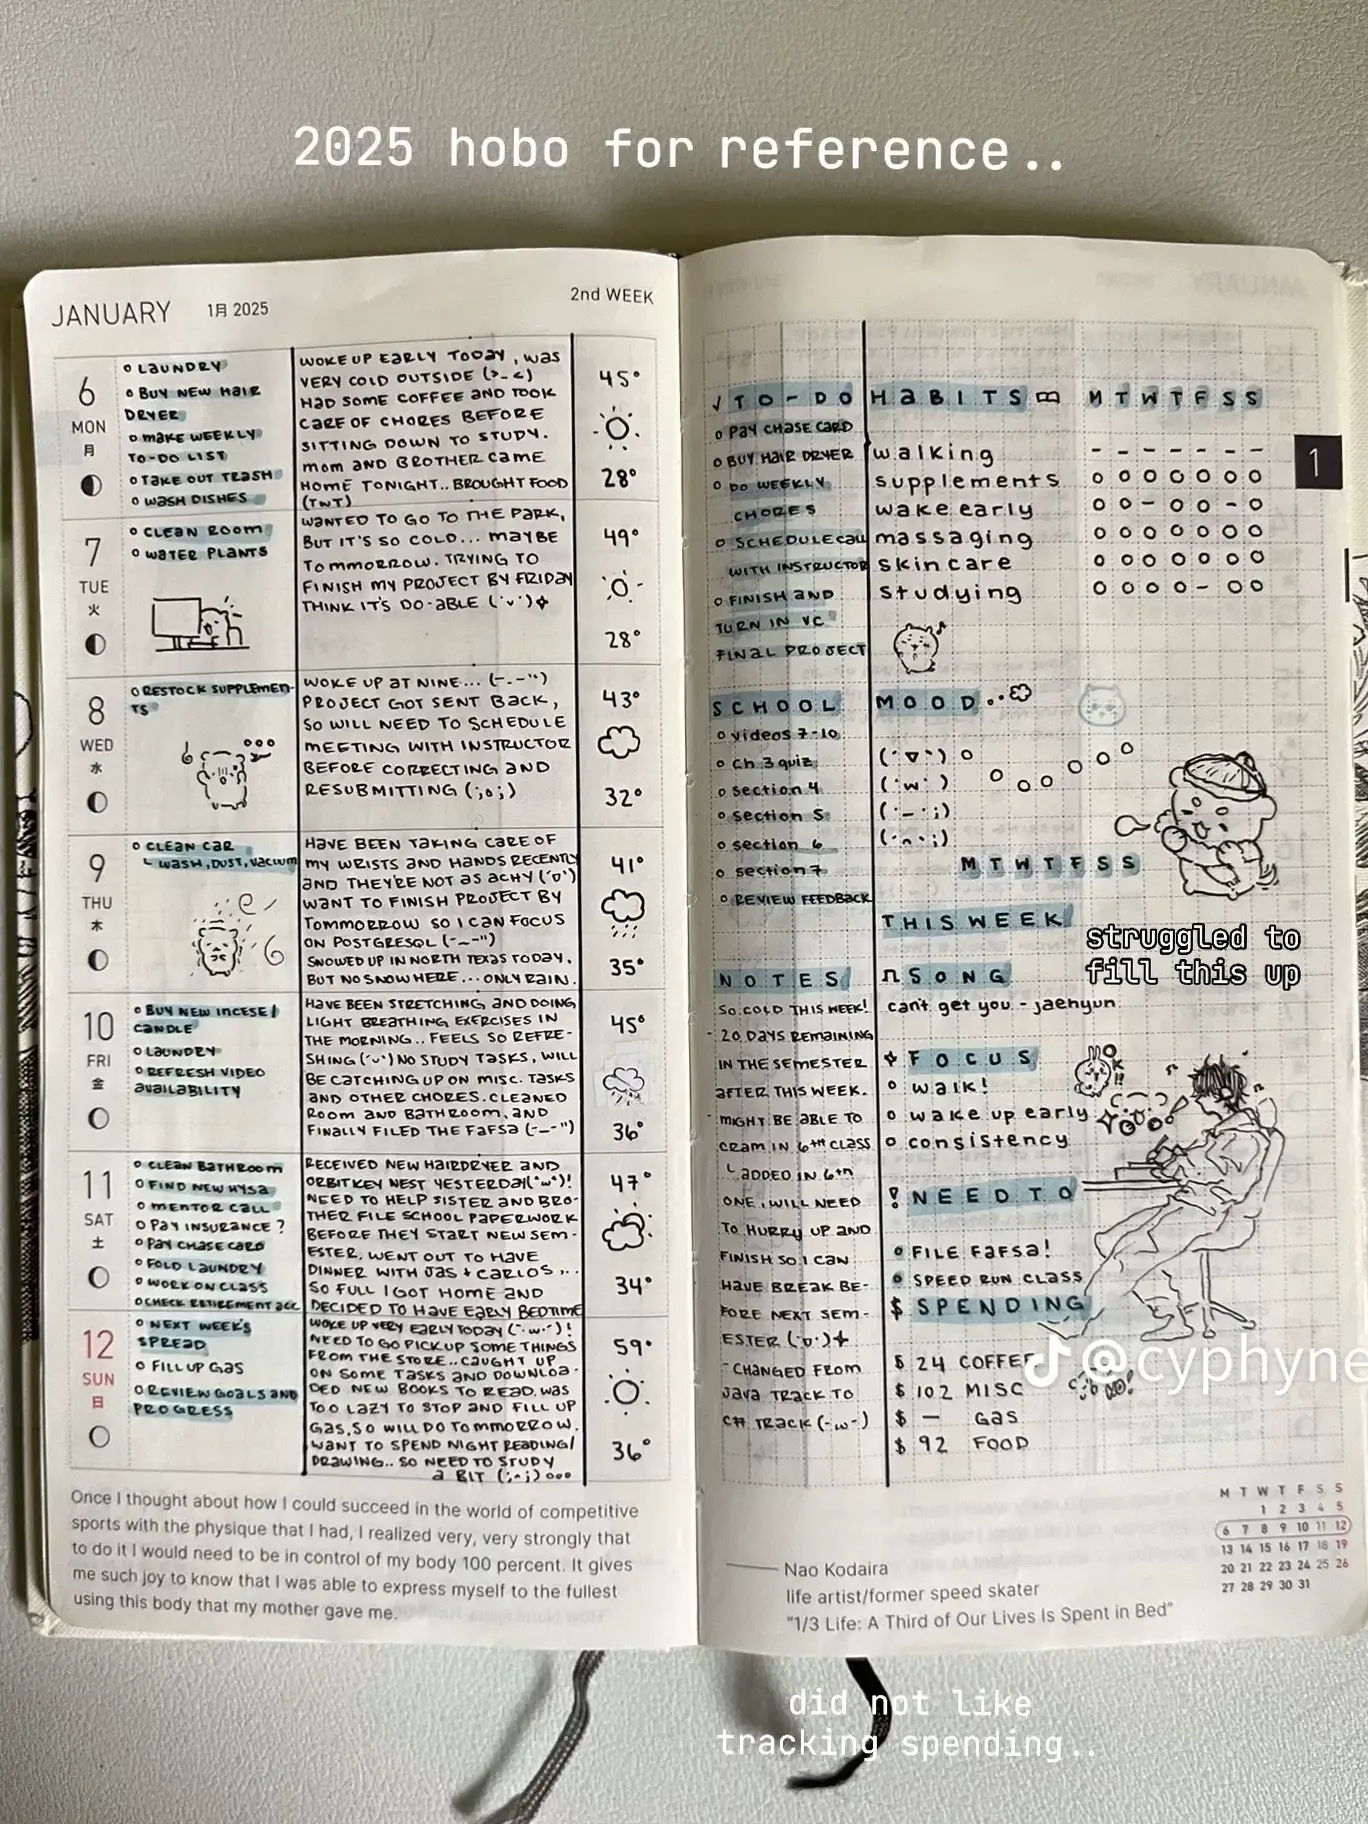 2025 hobo for reference..
JANUARY 1月 2025
2nd WEEK
6
MON
月
o LAUNDRY
o BUY NEW HAIR
DRYER
o MAKE WEEKLY
TO-DO LIST
o TAKE OUT TRASH
o WASH DISHES
WOKE UP EARLY TODAY, WAS
VERY COLD OUTSIDE (>_<)
HAD SOME COFFEE AND TOOK
CARE OF CHORES BEFORE
SITTING DOWN TO STUDY.
MOM AND BROTHER CAME
HOME TONIGHT.. BROUGHT FOOD
(TwT)
45°
28°
7
TUE
火
o CLEAN ROOM
o WATER PLANTS
WANTED TO GO TO THE PARK,
BUT IT'S SO COLD... MAYBE
TOMMORROW. TRYING TO
FINISH MY PROJECT BY FRIDAY
THINK IT'S DO-ABLE (ˊvˋ)✧
49°
28°
8
WED
水
o RESTOCK SUPPLEMEN-
TS
WOKE UP AT NINE... (-.-")
PROJECT GOT SENT BACK,
SO WILL NEED TO SCHEDULE
MEETING WITH INSTRUCTOR
BEFORE CORRECTING AND
RESUBMITTING (;o;)
43°
32°
9
THU
木
o CLEAN CAR
└ WASH, DUST, VACUUM
HAVE BEEN TAKING CARE OF
MY WRISTS AND HANDS RECENTLY
AND THEY'RE NOT AS ACHY (ˊʊˋ)
WANT TO FINISH PROJECT BY
TOMMORROW SO I CAN FOCUS
ON POSTGRESQL (-~-")
SNOWED UP IN NORTH TEXAS TODAY,
BUT NO SNOW HERE... ONLY RAIN.
41°
35°
10
FRI
金
o BUY NEW INCESE/
CANDLE
o LAUNDRY
o REFRESH VIDEO
AVAILABILITY
HAVE BEEN STRETCHING AND DOING
LIGHT BREATHING EXERCISES IN
THE MORNING.. FEELS SO REFRE-
SHING (ˊᵕˋ) NO STUDY TASKS, WILL
BE CATCHING UP ON MISC. TASKS
AND OTHER CHORES. CLEANED
ROOM AND BATHROOM, AND
FINALLY FILED THE FAFSA (-~-")
45°
36°
11
SAT
土
o CLEAN BATHROOM
o FIND NEW HYSA
o MENTOR CALL
o PAY INSURANCE?
o PAY CHASE CARD
o FOLD LAUNDRY
o WORK ON CLASS
o CHECK RETIREMENT ACC
RECEIVED NEW HAIRDRYER AND
ORBITKEY NEST YESTERDAY(ˊwˋ)!
NEED TO HELP SISTER AND BRO-
THER FILE SCHOOL PAPERWORK
BEFORE THEY START NEW SEM-
ESTER. WENT OUT TO HAVE
DINNER WITH JAS + CARLOS ...
SO FULL I GOT HOME AND
DECIDED TO HAVE EARLY BEDTIME
47°
34°
12
SUN
日
o NEXT WEEK'S
SPREAD
o FILL UP GAS
o REVIEW GOALS AND
PROGRESS
WOKE UP VERY EARLY TODAY (ˊ·w·ˋ)!
NEED TO GO PICK UP SOME THINGS
FROM THE STORE.. CAUGHT UP
ON SOME TASKS AND DOWNLOA-
DED NEW BOOKS TO READ. WAS
TOO LAZY TO STOP AND FILL UP
GAS, SO WILL DO TOMMORROW.
WANT TO SPEND NIGHT READING/
DRAWING.. SO NEED TO STUDY
A BIT (;-;) ooo
59°
36°
Once I thought about how I could succeed in the world of competitive
sports with the physique that I had, I realized very, very strongly that
to do it I would need to be in control of my body 100 percent. It gives
me such joy to know that I was able to express myself to the fullest
using this body that my mother gave me.
√ TO-DO
o PAY CHASE CARD
o BUY HAIR DRYER
o DO WEEKLY
CHORES
o SCHEDULE CALL
WITH INSTRUCTOR
o FINISH AND
TURN IN VC
FINAL PROJECT
HABITS
M T W T F S S
walking - - - - - - -
supplements o o o o o o o
wake early o o - o o - o
massaging o o o o o o o
skincare o o o o o o o
studying o o o o - o o
1
SCHOOL
o videos 7-10
o Ch 3 quiz
o section 4
o section 5
o section 6
o section 7
o REVIEW FEEDBACK
MOOD
(ˊ▽ˋ)
(ˊwˋ)
(ˊ-ˋ;)
(ˊ^ˋ;)
M T W T F S S
struggled to
fill this up
NOTES
SO COLD THIS WEEK!
- 20 DAYS REMAINING
IN THE SEMESTER
AFTER THIS WEEK.
- MIGHT BE ABLE TO
CRAM IN 6TH CLASS
└ ADDED IN 6TH
ONE, WILL NEED
TO HURRY UP AND
FINISH SO I CAN
HAVE BREAK BE-
FORE NEXT SEM-
ESTER (ˊʊˋ)✧
- CHANGED FROM
JAVA TRACK TO
C# TRACK (-w-)
THIS WEEK
SONG
can't get you - jaehyun
✧ FOCUS
o walk!
o wake up early
o consistency
OK!!
! NEED TO
o FILE FAFSA!
o SPEED RUN CLASS
$ SPENDING
$ 24 COFFEE
$ 102 MISC
$ — GAS
$ 92 FOOD
@cyphyne
Nao Kodaira
life artist/former speed skater
"1/3 Life: A Third of Our Lives Is Spent in Bed"
M T W T F S S
1 2 3 4 5
6 7 8 9 10 11 12
13 14 15 16 17 18 19
20 21 22 23 24 25 26
27 28 29 30 31
did not like
tracking spending..